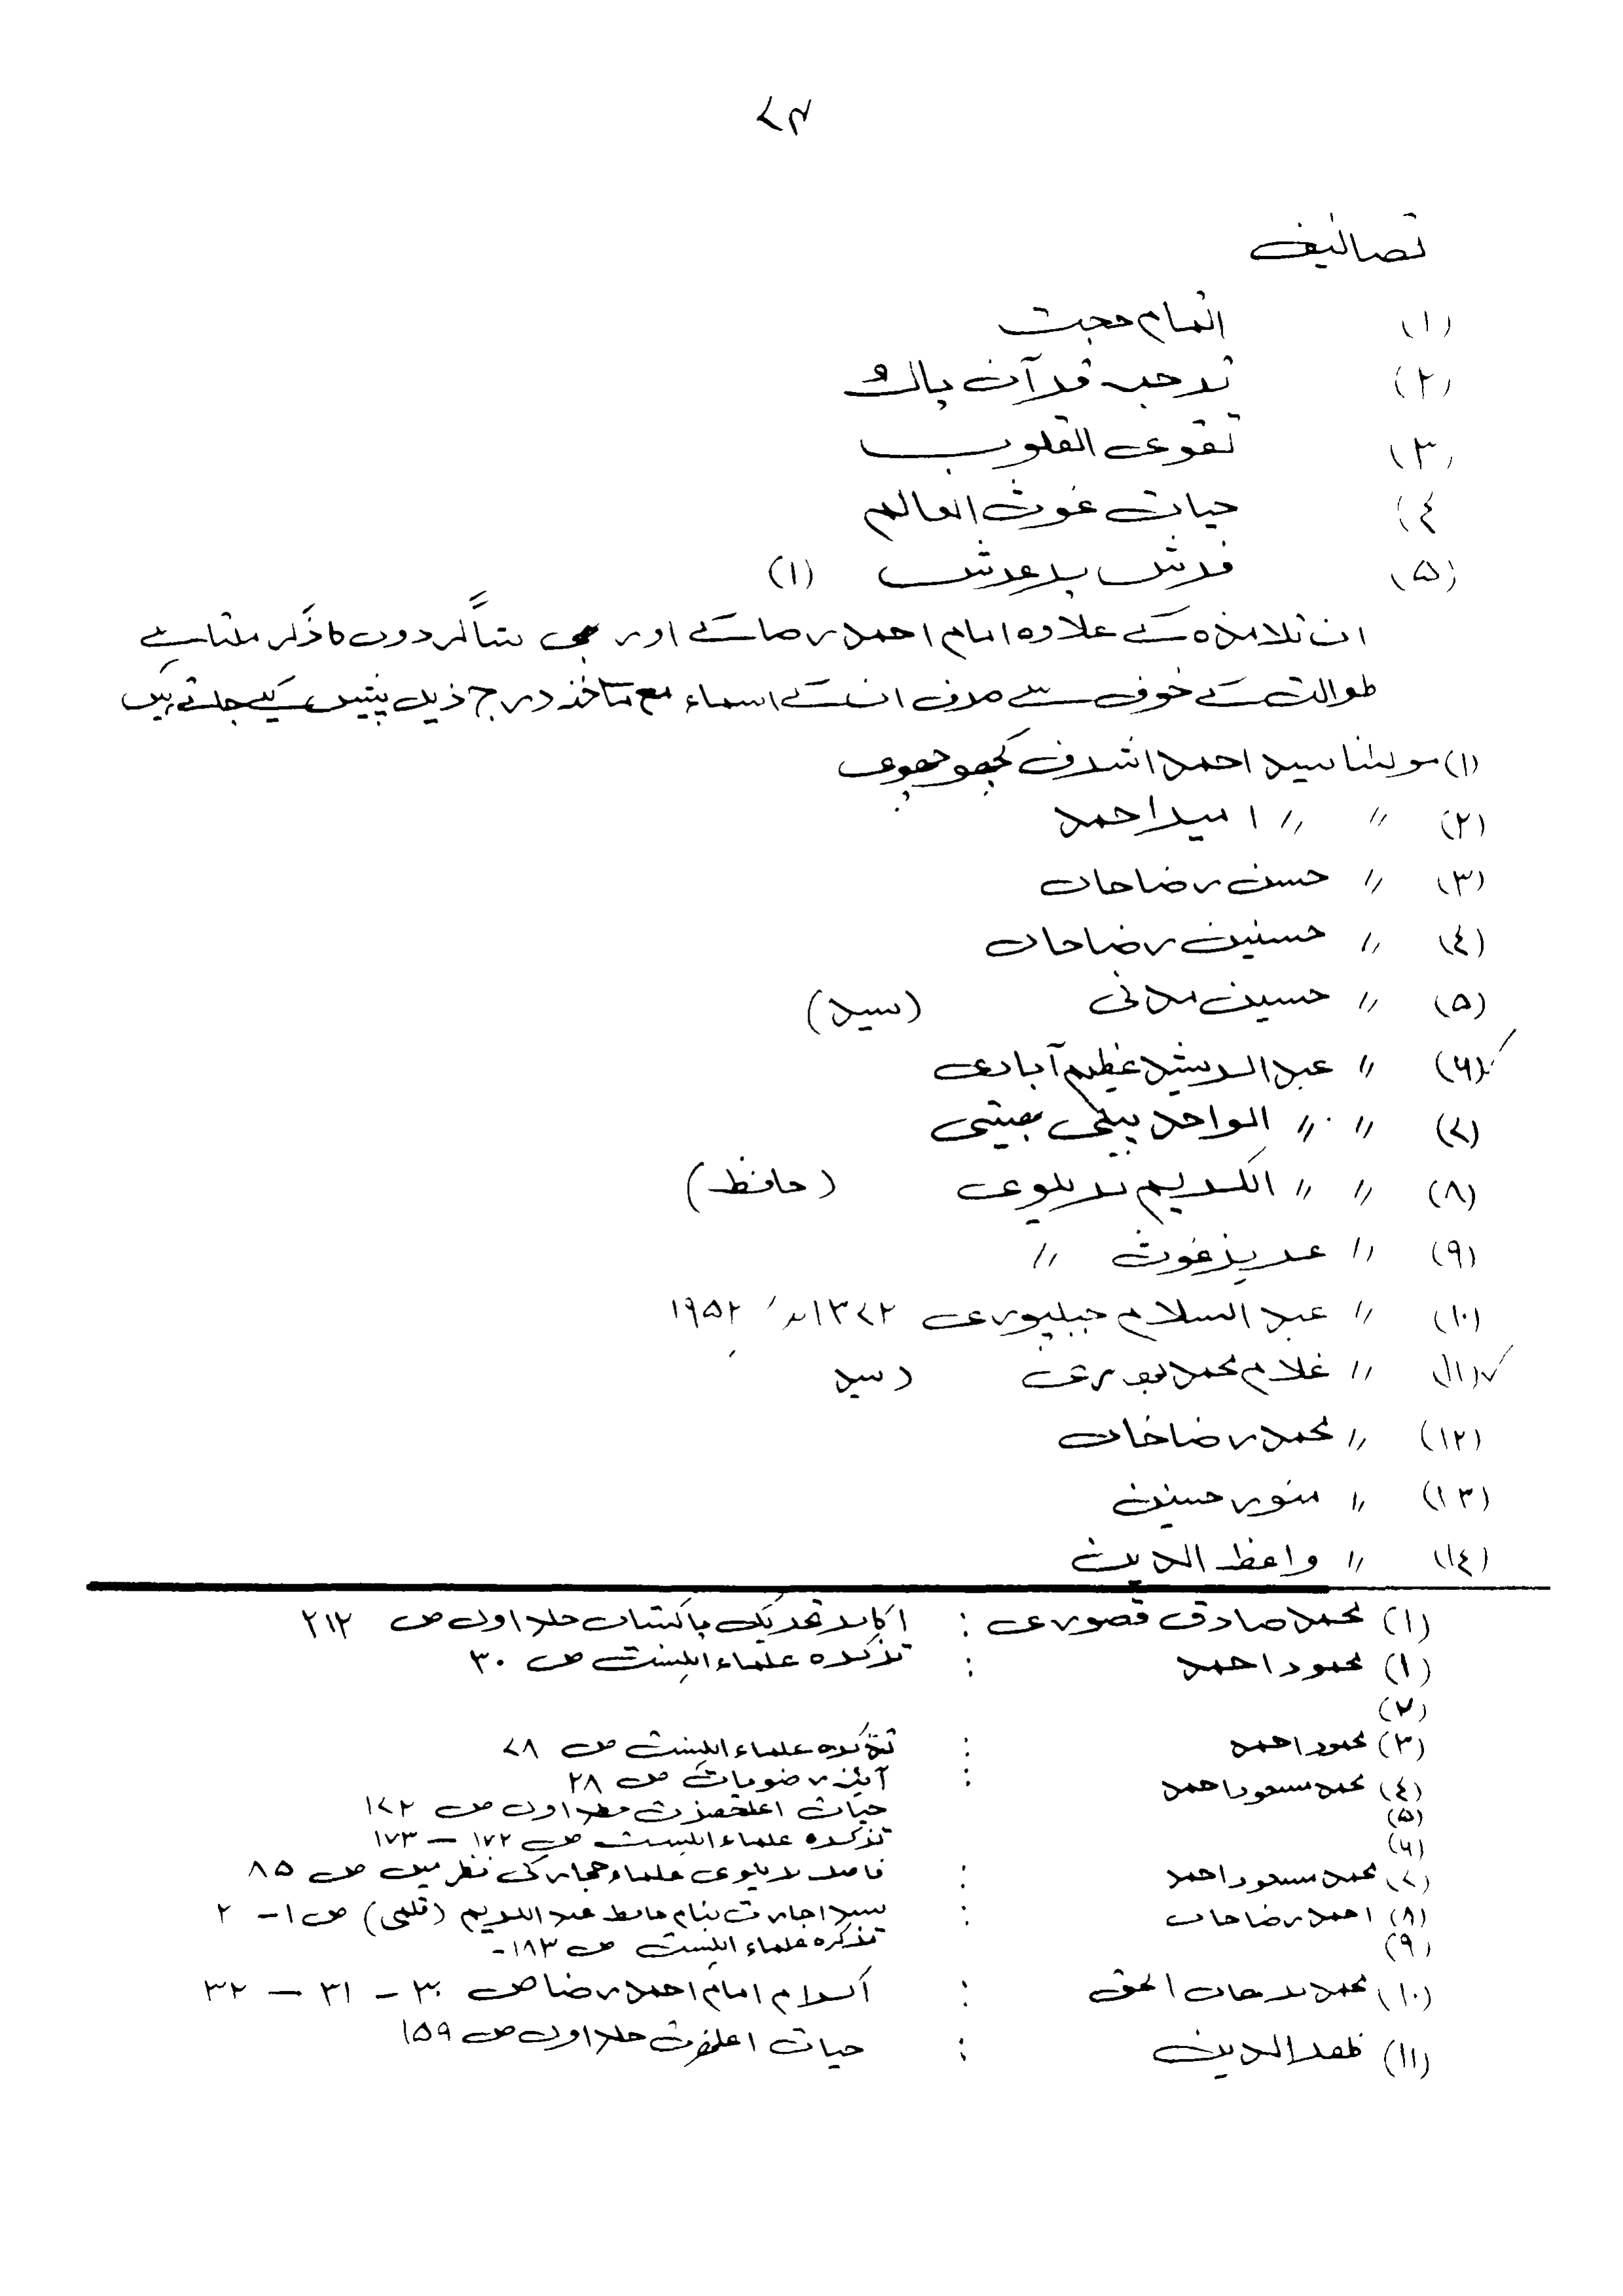 ۷۴
تصانیف
(۱) اتمام حجت
(۲) ترجمہ قرآن پاک
(۳) تقوی القلوب
(۴) حیات غوث العالم
(۵) فرش پر عرش (۱)
ان تلامذہ کے علاوہ امام احمد رضا کے اور بھی شاگردوں کا ذکر ملتا ہے
طوالت کے خوف سے صرف ان کے اسماء مع مآخذ درج ذیل پیش کیے جاتے ہیں
(۱) مولٰنا سید احمد اشرف کچھوچھوی
(۲) // // امیر احمد
(۳) // حسن رضا خان
(۴) // حسنین رضا خان
(۵) // حسین مدنی (سید)
(۶) // عبد الرشید عظیم آبادی
(۷) // // الواحد پیلی بھیتی
(۸) // // الکریم بریلوی (حافظ)
(۹) // عزیز غوث //
(۱۰) // عبد السلام جبلپوری ۱۳۷۲ھ / ۱۹۵۲
(۱۱) // غلام محمد (سید
(۱۲) // محمد رضا خان
(۱۳) // منور حسین
(۱۴) // واعظ الدین
(۱) محمد صادق قصوری : اکابر تحریک پاکستان جلد اول ص ۲۱۲
(۱) محمود احمد : تذکرہ علماء اہلسنت ص ۳۰
(۲)
(۳) محمود احمد : تذکرہ علماء اہلسنت ص ۷۸
(۴) محمد مسعود احمد : آئینہ رضویات ص ۲۸
(۵) حیات اعلحضرت جلد اول ص ۱۷۲
(۶) تذکرہ علماء اہلسنت ص ۱۷۲ – ۱۷۳
(۷) محمد مسعود احمد : فاضل بریلوی علماء حجاز کی نظر میں ص ۸۵
(۸) احمد رضا خان : سند اجازت بنام حافظ عبد الکریم (قلمی) ص ۱ – ۲
(۹) تذکرہ علماء اہلسنت ص ۱۸۳ -
(۱۰) محمد برھان الحق : اکرام امام احمد رضا ص ۳۰ – ۳۱ – ۳۲
(۱۱) ظفر الدین : حیات اعلحضرت جلد اول ص ۱۵۹